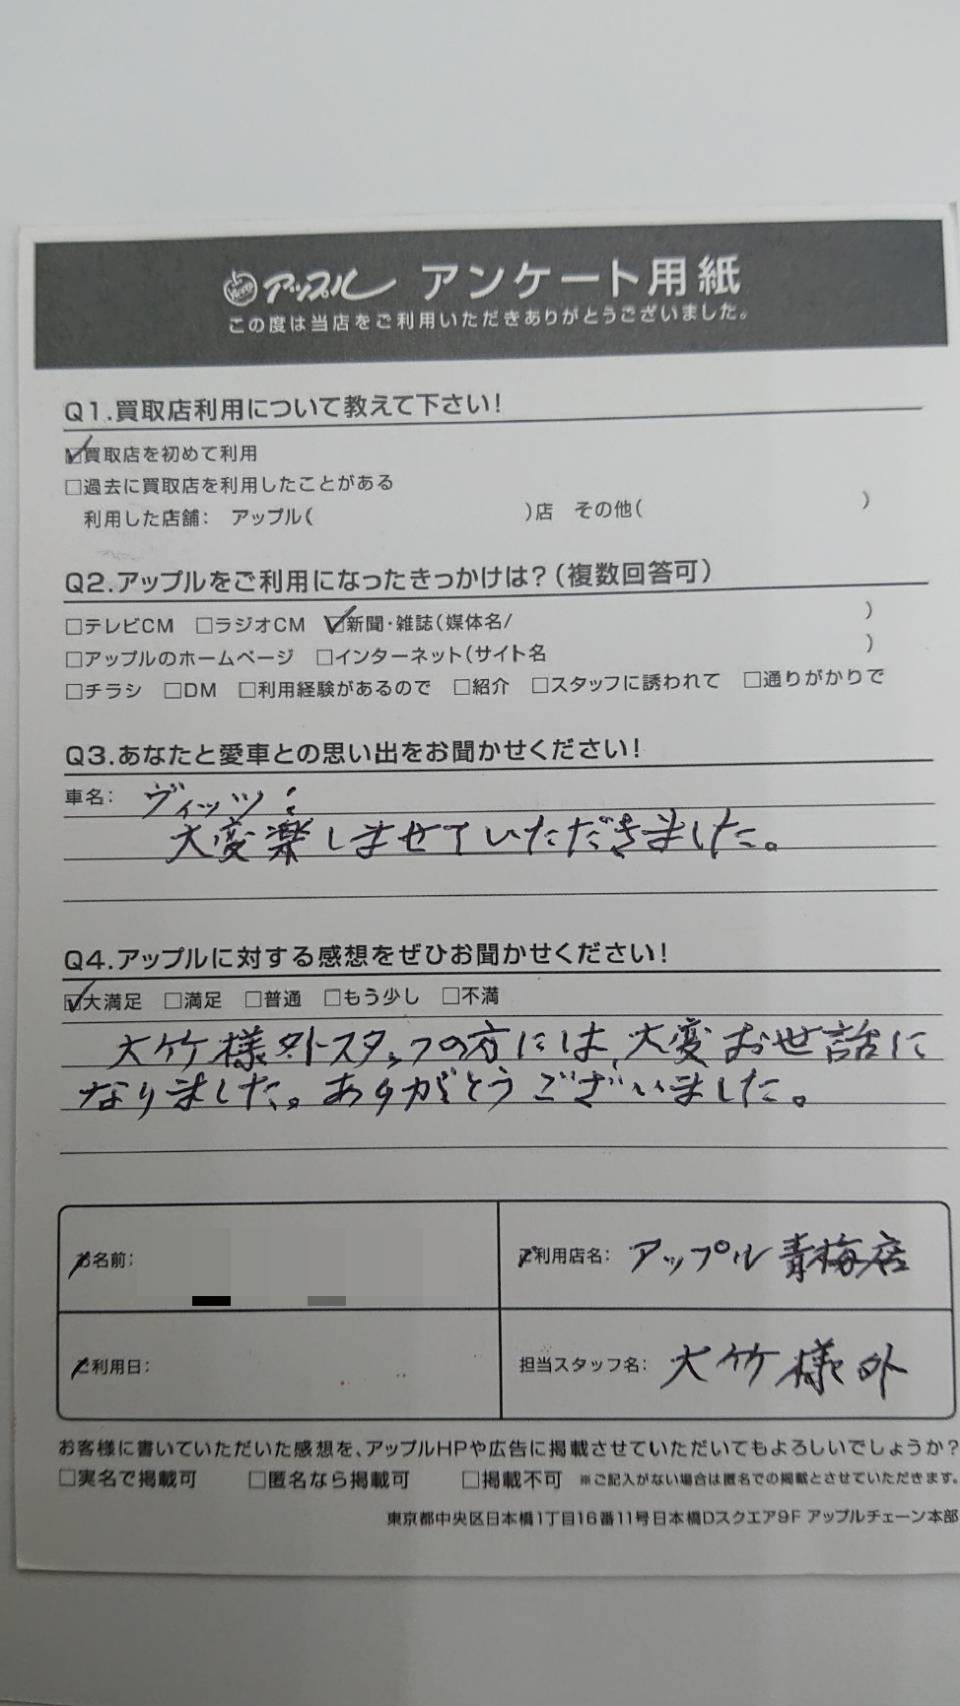 アップル アンケート用紙
この度は当店をご利用いただきありがとうございました。
Q1.買取店利用について教えて下さい!
☑買取店を初めて利用
□過去に買取店を利用したことがある
利用した店舗: アップル( )店 その他( )
Q2.アップルをご利用になったきっかけは?(複数回答可)
□テレビCM □ラジオCM ☑新聞・雑誌(媒体名/ )
□アップルのホームページ □インターネット(サイト名 )
□チラシ □DM □利用経験があるので □紹介 □スタッフに誘われて □通りがかりで
Q3.あなたと愛車との思い出をお聞かせください!
車名: ヴィッツ:
大変楽しませていただきました。
Q4.アップルに対する感想をぜひお聞かせください!
☑大満足 □満足 □普通 □もう少し □不満
大竹様外スタッフの方には、大変お世話に
なりました。ありがとうございました。
お名前:
ご利用店名: アップル青梅店
ご利用日:
担当スタッフ名: 大竹様外
お客様に書いていただいた感想を、アップルHPや広告に掲載させていただいてもよろしいでしょうか?
□実名で掲載可 □匿名なら掲載可 □掲載不可 ※ご記入がない場合は匿名での掲載とさせていただきます。
東京都中央区日本橋1丁目16番11号日本橋Dスクエア9F アップルチェーン本部